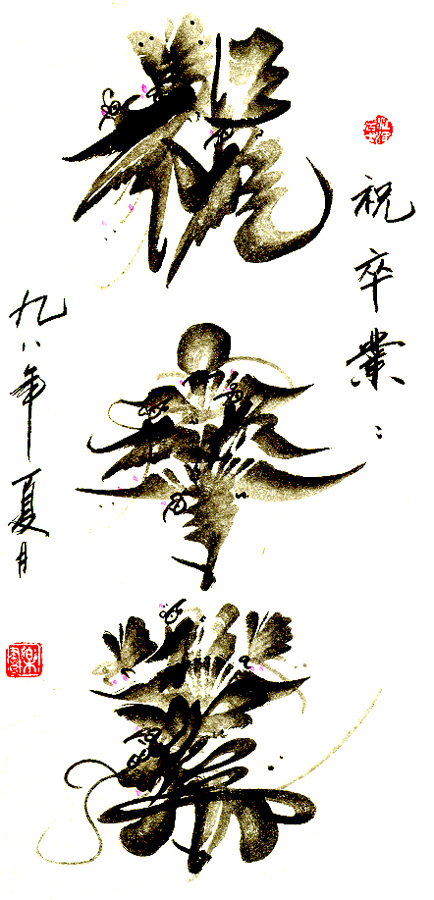 祝卒業：
祝
卒
業
九八年夏月